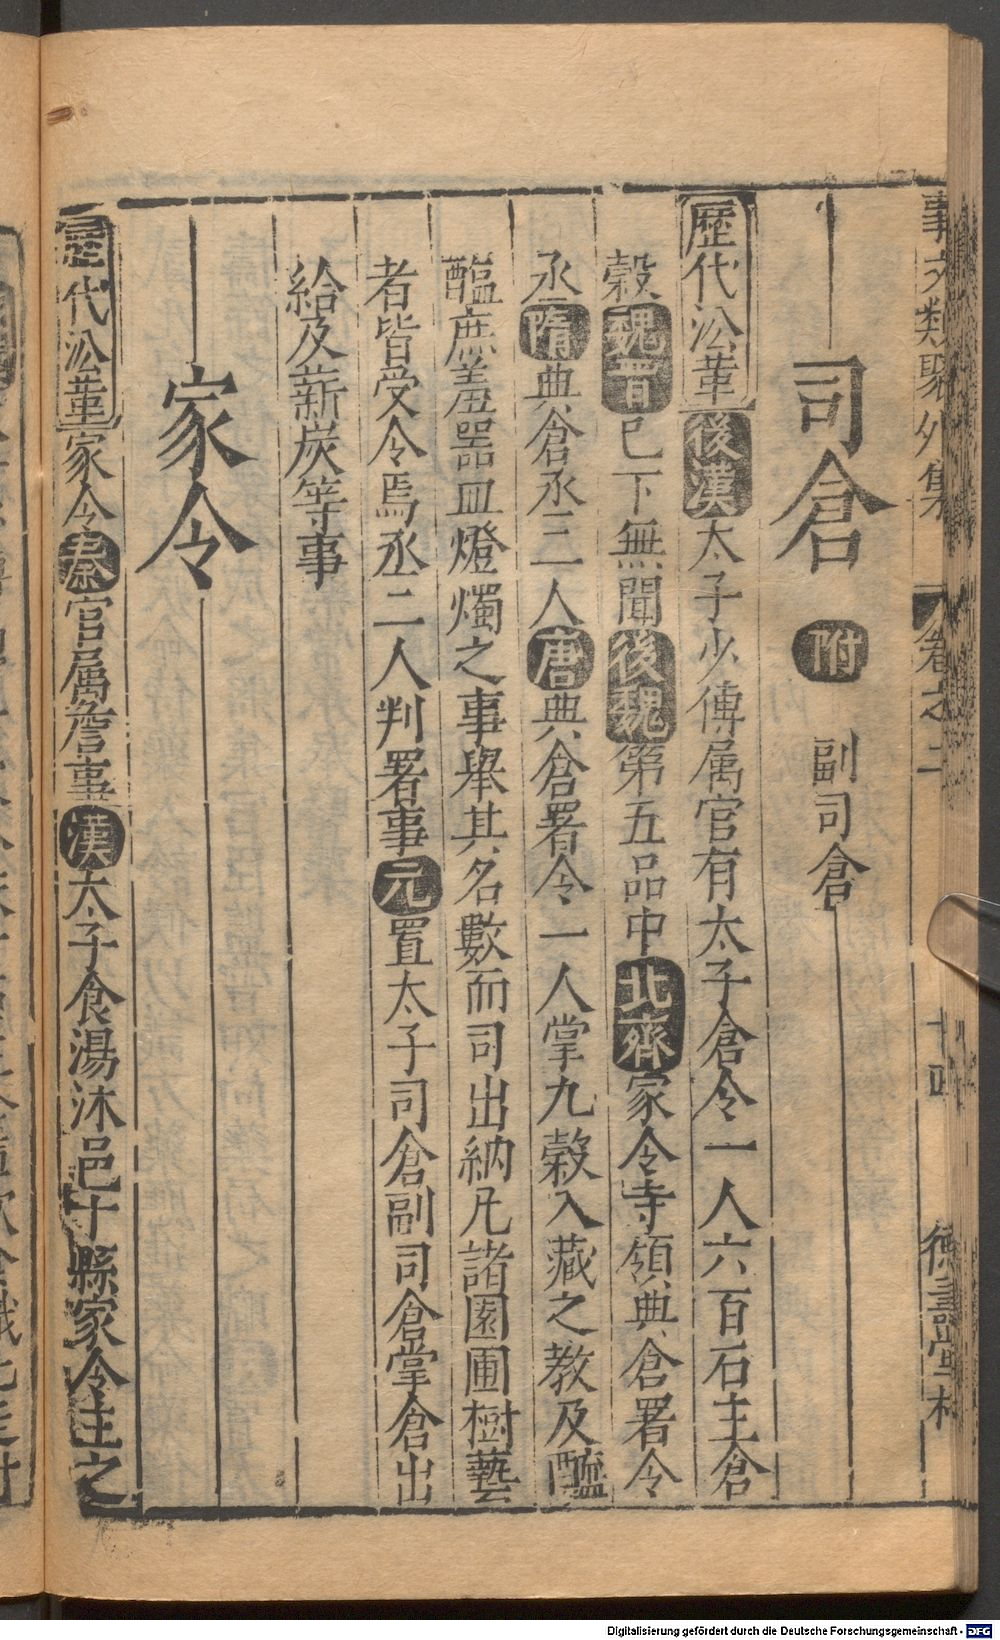 事文類聚外集 卷之二 十四 德壽堂梓
司倉 附 副司倉
歷代沿革 後漢 太子少傅属官有太子倉令一人六百石主倉
穀 魏晉 已下無聞 後魏 第五品中 北齊 家令寺領典倉署令
丞 隋 典倉丞二人 唐 典倉署令一人掌九穀入藏之教及醯
醢庶羞器皿燈燭之事舉其名數而司出納凡諸園圃樹藝
者皆受令焉丞二人判署事 元 置太子司倉副司倉掌倉出
給及薪炭等事
家令
歷代沿革 家令 秦 官属詹事 漢 太子食湯沐邑十縣家令主之
Digitalisierung gefördert durch die Deutsche Forschungsgemeinschaft - DFG